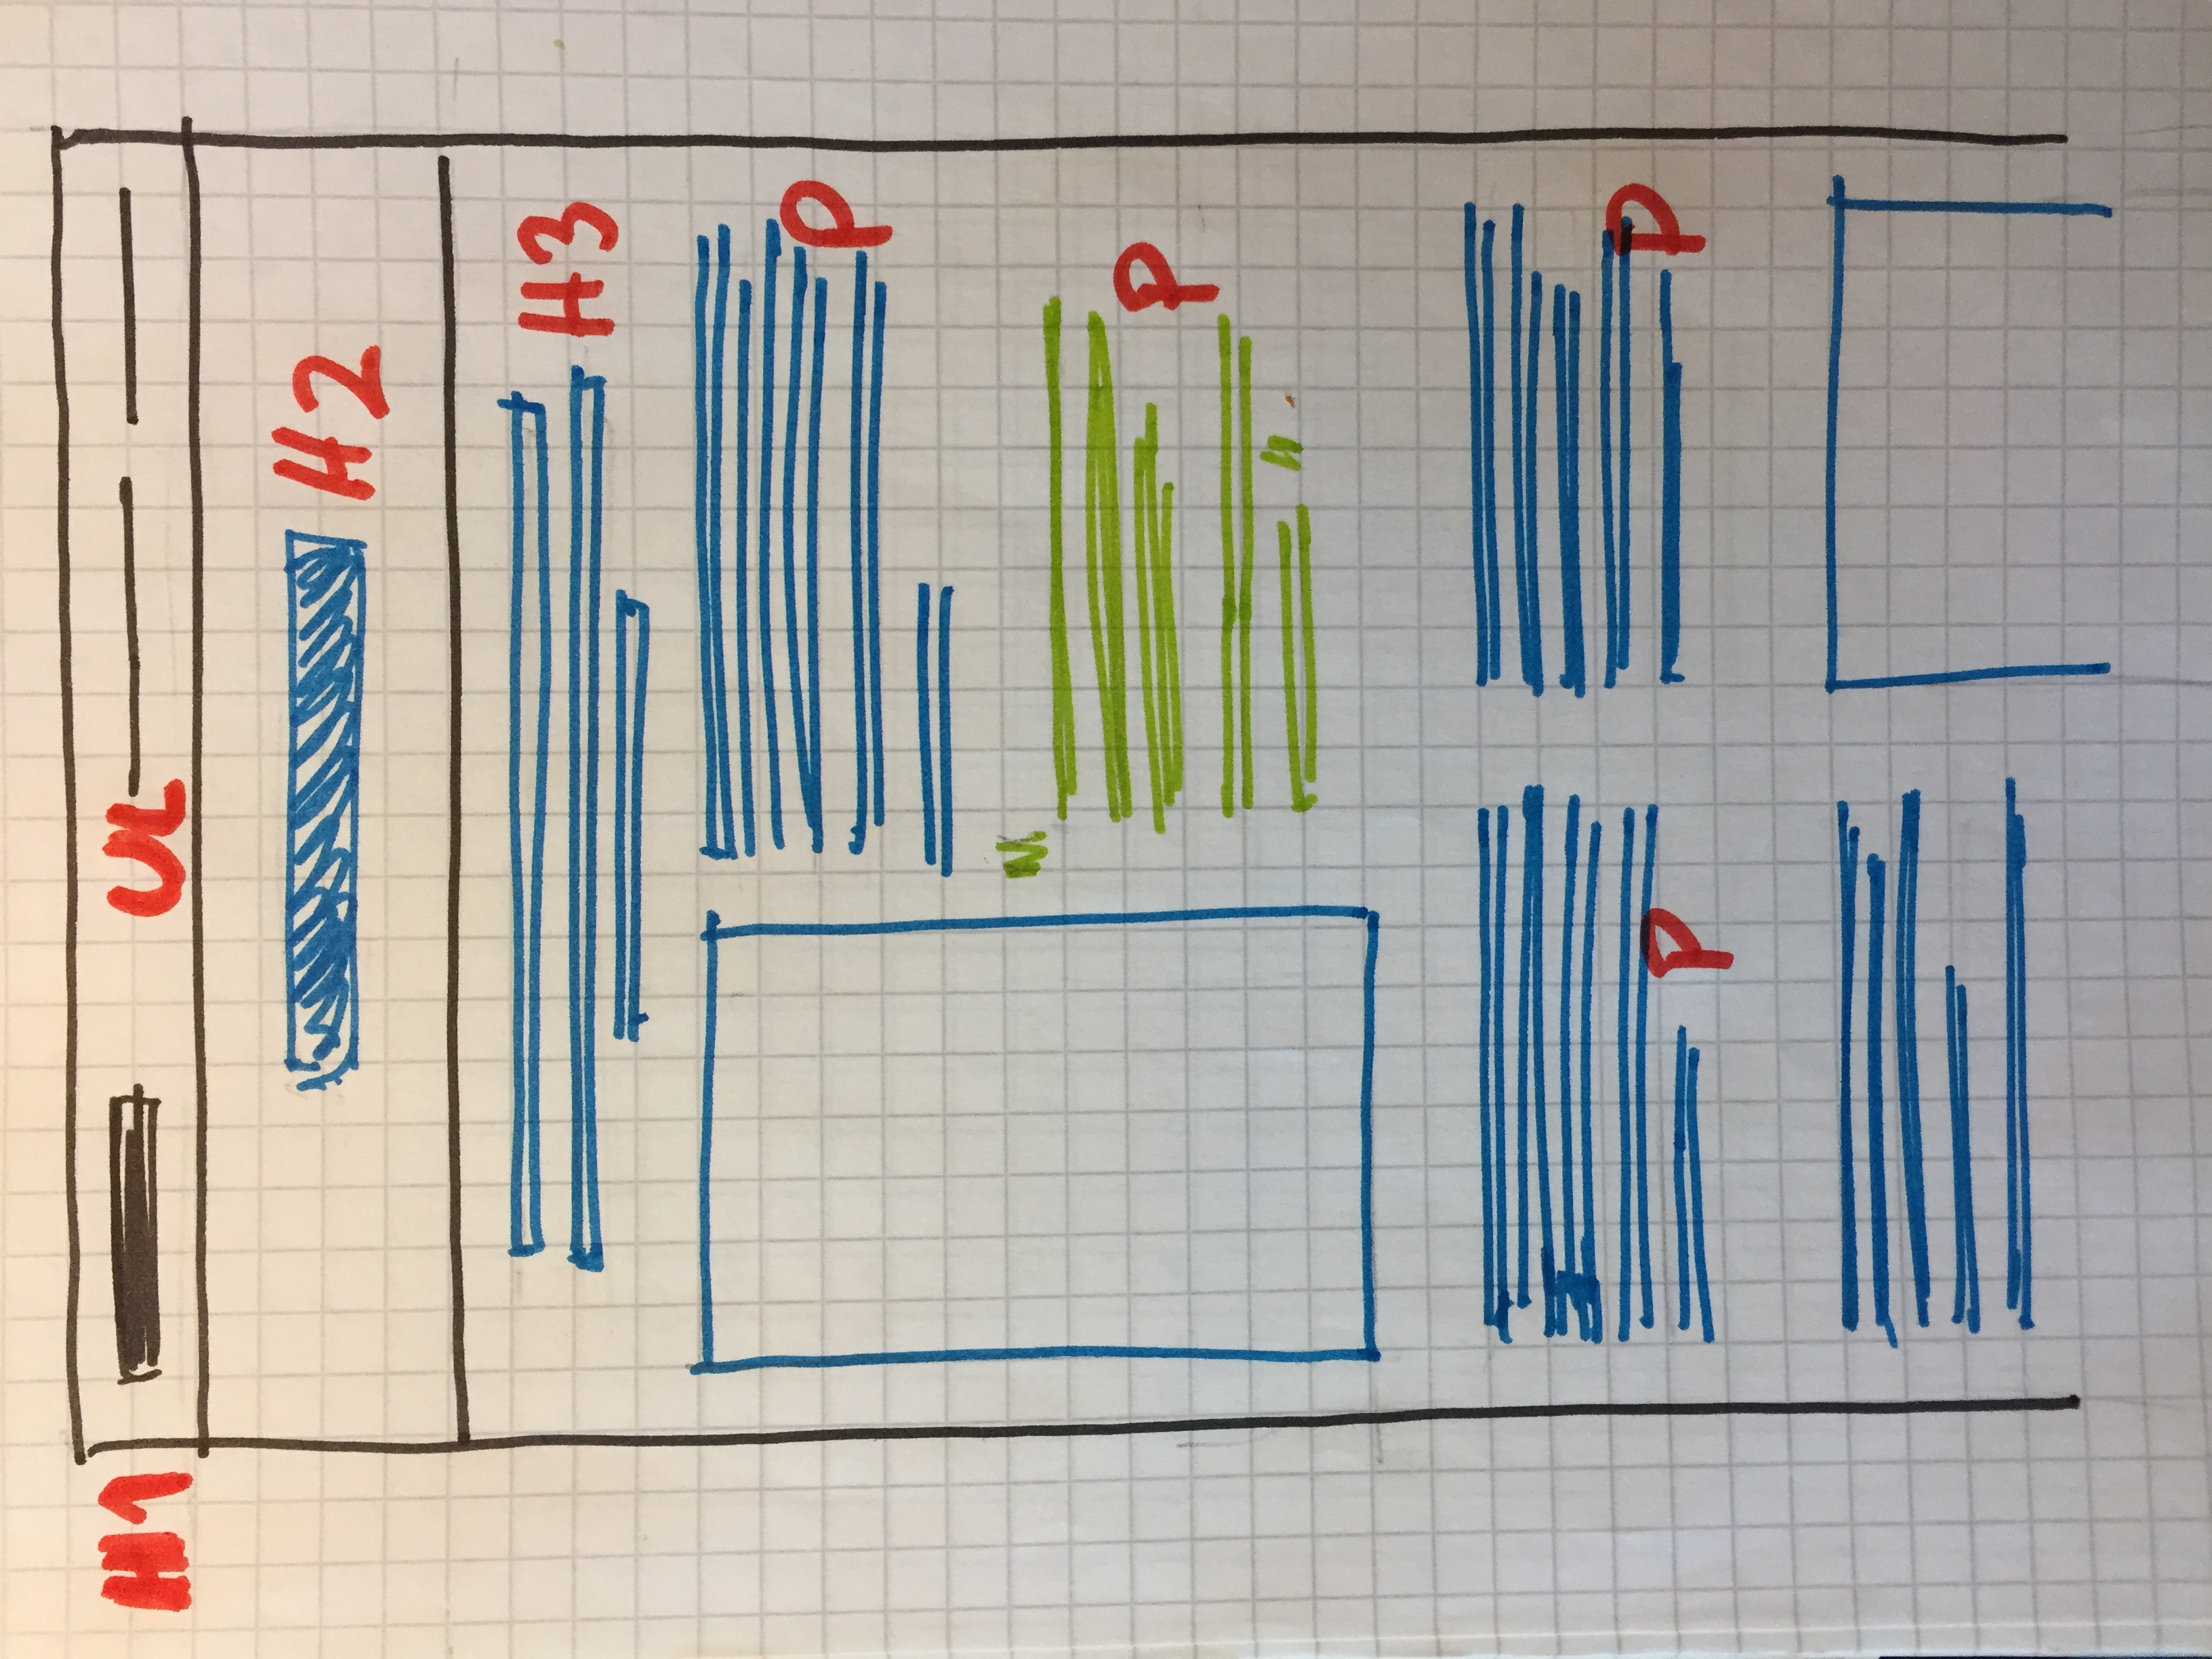 H1
UL
H2
H3
P
"
P
"
P
P